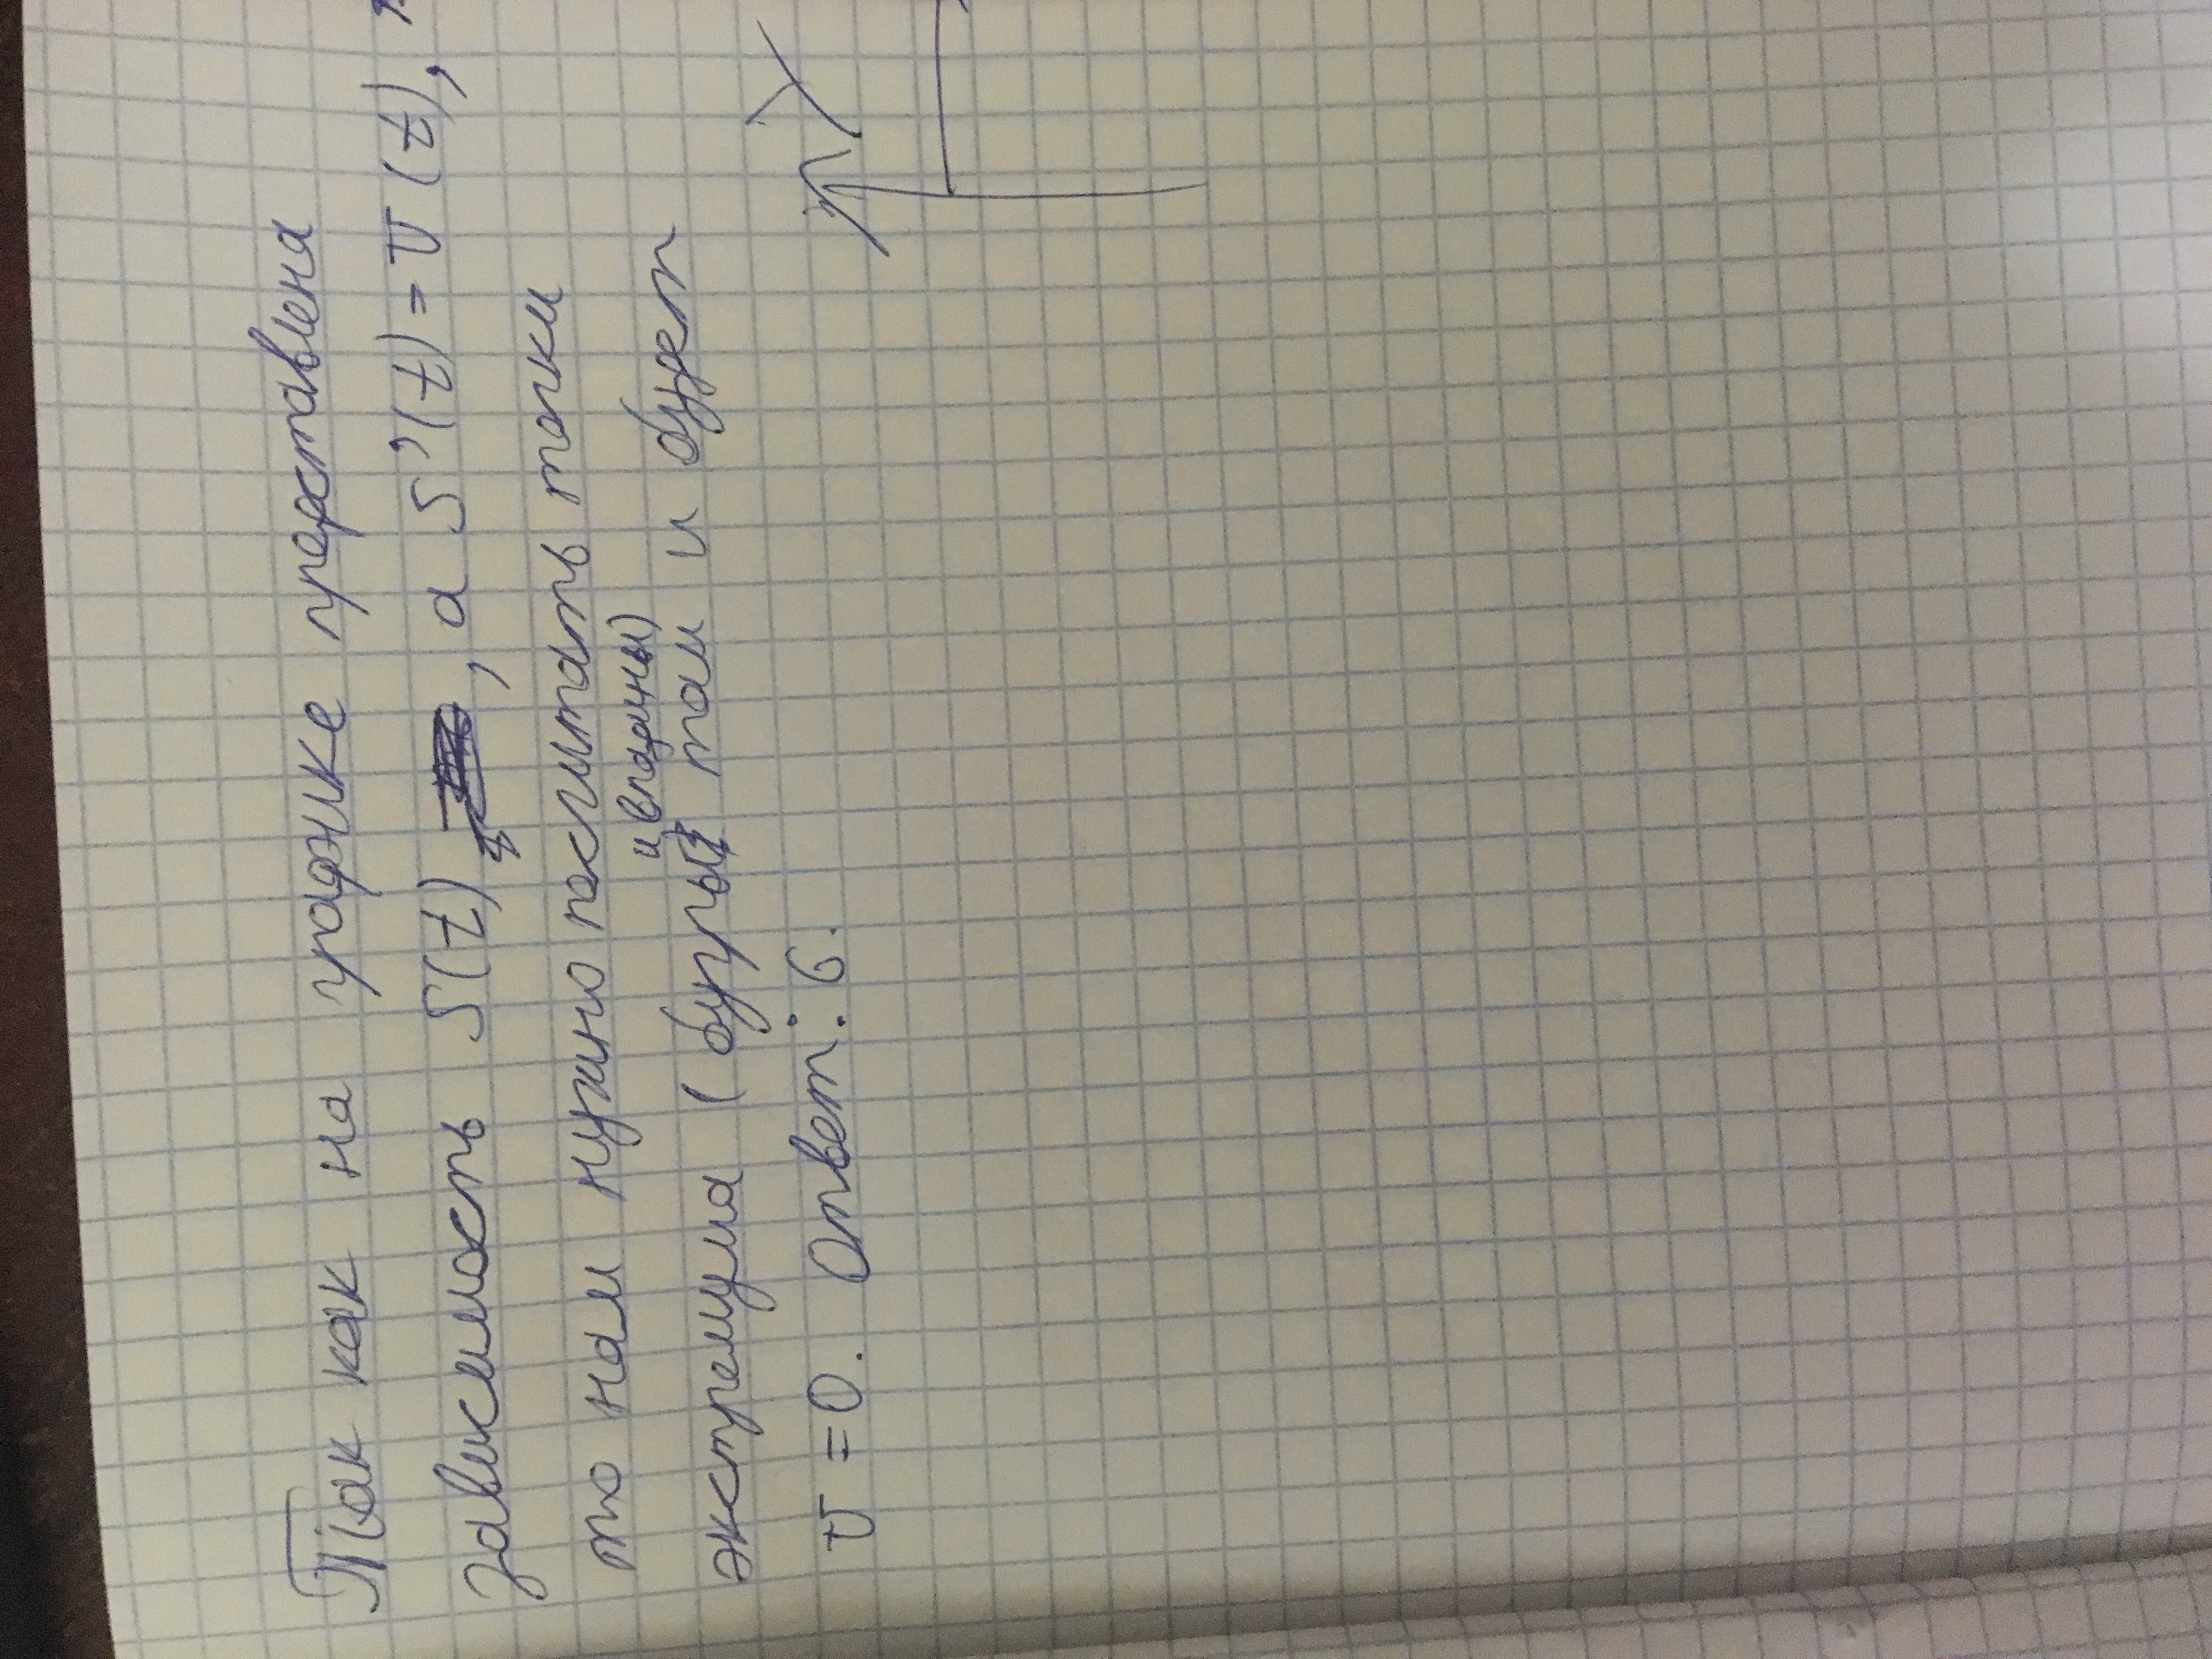 Так как на графике представлена
зависимость S(t), а S'(t) = υ(t),
то нам нужно посчитать точки
экстремума (бугры и впадины) там и будет
υ = 0. Ответ: 6.